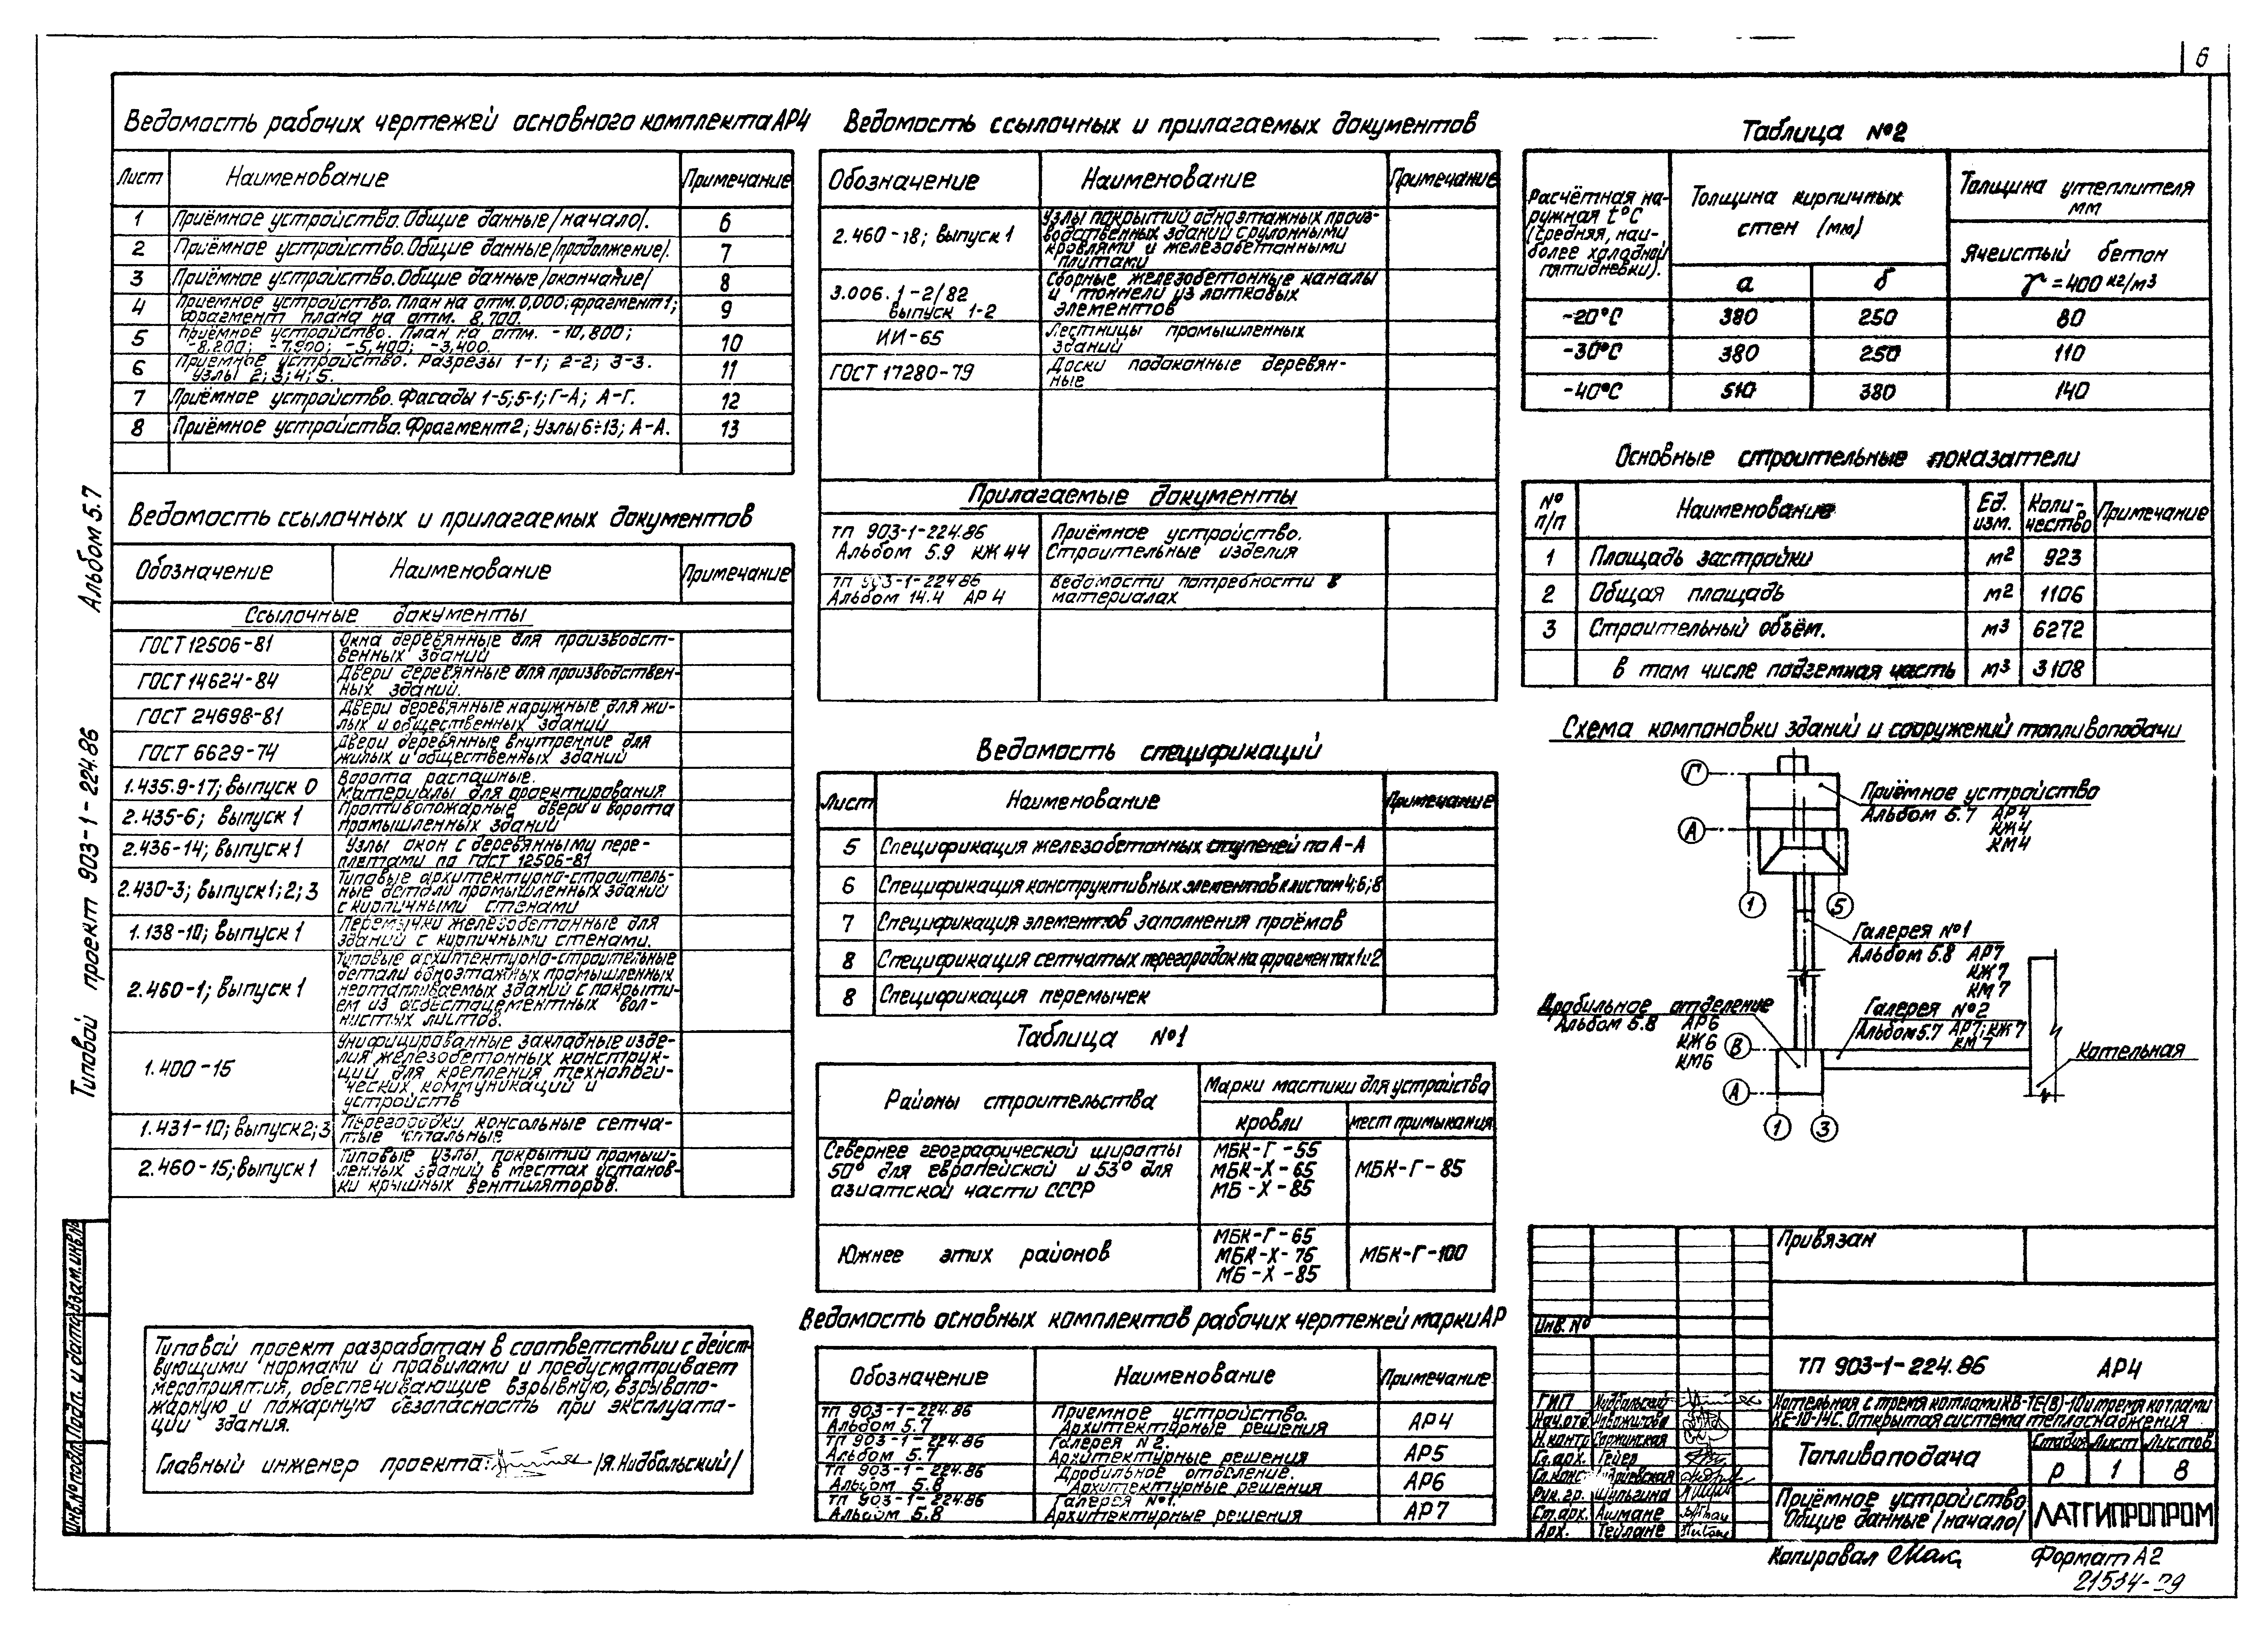 6
Ведомость рабочих чертежей основного комплекта АР4
Лист Наименование Примечание
1 Приёмное устройство. Общие данные /начало/. 6
2 Приёмное устройство. Общие данные /продолжение/. 7
3 Приёмное устройство. Общие данные /окончание/ 8
4 Приёмное устройство. План на отм. 0,000; фрагмент 1; 9
фрагмент плана на отм. 8,700.
5 Приёмное устройство. План на отм. -10,800; 10
8,200; -7,900; -5,400; -3,400.
6 Приёмное устройство. Разрезы 1-1; 2-2; 3-3. 11
Узлы 2; 3; 4; 5.
7 Приёмное устройство. Фасады 1-5; 5-1; Г-А; А-Г. 12
8 Приёмное устройство. Фрагмент 2; Узлы 6÷13; А-А. 13
Ведомость ссылочных и прилагаемых документов
Обозначение Наименование Примечание
Ссылочные документы
ГОСТ 12506-81 Окна деревянные для производст-
венных зданий
ГОСТ 14624-84 Двери деревянные для производствен-
ных зданий.
ГОСТ 24698-81 Двери деревянные наружные для жи-
лых и общественных зданий
ГОСТ 6629-74 Двери деревянные внутренние для
жилых и общественных зданий
1.435.9-17; выпуск 0 Ворота распашные.
Материалы для проектирования
2.435-6; выпуск 1 Противопожарные двери и ворота
промышленных зданий
2.436-14; выпуск 1 Узлы окон с деревянными пере-
плетами по ГОСТ 12506-81
2.430-3; выпуск 1; 2; 3 Типовые архитектурно-строитель-
ные детали промышленных зданий
с кирпичными стенами
1.138-10; выпуск 1 Перемычки железобетонные для
зданий с кирпичными стенами.
2.460-1; выпуск 1 Типовые архитектурно-строительные
детали одноэтажных промышленных
неотапливаемых зданий с покрыти-
ем из асбестоцементных вол-
нистых листов.
1.400-15 Унифицированные закладные изде-
лия железобетонных конструк-
ций для крепления технологи-
ческих коммуникаций и
устройств
1.431-10; выпуск 2; 3 Перегородки консольные сетча-
тые стальные
2.460-15; выпуск 1 Типовые узлы покрытий промыш-
ленных зданий в местах установ-
ки крышных вентиляторов.
Типовой проект разработан в соответствии с дейст-
вующими нормами и правилами и предусматривает
мероприятия, обеспечивающие взрывную, взрывопо-
жарную и пожарную безопасность при эксплуата-
ции здания.
Главный инженер проекта: /Я. Нидбальский/
Ведомость ссылочных и прилагаемых документов
Обозначение Наименование Примечание
2.460-18; выпуск 1 Узлы покрытий одноэтажных произ-
водственных зданий с рулонными
кровлями и железобетонными
плитами
3.006.1-2/82 Сборные железобетонные каналы
выпуск 1-2 и тоннели из лотковых
элементов
ИИ-65 Лестницы промышленных
зданий
ГОСТ 17280-79 Доски подоконные деревян-
ные
Прилагаемые документы
ТП 903-1-224.86 Приёмное устройство.
Альбом 5.9 КЖ44 Строительные изделия
ТП 903-1-224.86 Ведомости потребности в
Альбом 14.4 АР4 материалах
Ведомость спецификаций
Лист Наименование Примечание
5 Спецификация железобетонных ступеней по А-А
6 Спецификация конструктивных элементов к листам 4; 6; 8
7 Спецификация элементов заполнения проёмов
8 Спецификация сетчатых перегородок на фрагментах 1 и 2
8 Спецификация перемычек
Таблица №1
Районы строительства Марки мастики для устройства
кровли мест примыкания
Севернее географической широты МБК-Г-55
50° для европейской и 53° для МБК-Х-65 МБК-Г-85
азиатской части СССР МБ-Х-85
МБК-Г-65
Южнее этих районов МБК-Х-75 МБК-Г-100
МБ-Х-85
Ведомость основных комплектов рабочих чертежей марки АР
Обозначение Наименование Примечание
ТП 903-1-224.86 Приемное устройство. АР4
Альбом 5.7 Архитектурные решения
ТП 903-1-224.86 Галерея №2. АР5
Альбом 5.7 Архитектурные решения
ТП 903-1-224.86 Дробильное отделение. АР6
Альбом 5.8 Архитектурные решения
ТП 903-1-224.86 Галерея №1. АР7
Альбом 5.8 Архитектурные решения
Таблица №2
Расчётная на-
ружная t°С
(средняя, наи-
более холодной
пятидневки).
Толщина кирпичных
стен (мм)
Толщина утеплителя
мм
Ячеистый бетон
γ=400 кг/м3
а б
-20°С 380 250 80
-30°С 380 250 110
-40°С 510 380 140
Основные строительные показатели
№ п/п Наименование Ед. изм. Коли-чество Примечание
1 Площадь застройки м2 923
2 Общая площадь м2 1106
3 Строительный объём. м3 6272
в том числе подземная часть м3 3108
Схема компановки зданий и сооружений топливоподачи
Г
А
Приёмное устройство
Альбом 5.7 АР4
КЖ4
КМ4
1 5
Галерея №1
Альбом 5.8 АР7
КЖ7
КМ7
Дробильное отделение
Альбом 5.8 АР6
КЖ6
КМ6
Галерея №2
Альбом 5.7 АР7; КЖ7
КМ7
В
А
Котельная
1 3
Привязан
Инв. №
ТП 903-1-224.86 АР4
ГИП Нидбальский
Нач. отд.
Н. контр.
Гл. арх. Гейер
Гл. конс.
Рук. гр. Шульгина
Ст. арх. Ашмане
Арх. Тейлане
Котельная с тремя котлами КВ-ТС(В)-10 и тремя котлами
КЕ-10-14С. Открытая система теплоснабжения
Топливоподача
Стадия Лист Листов
Р 1 8
Приёмное устройство
Общие данные /начало/
ЛАТГИПРОПРОМ
Копировал
Формат А2
Типовой проект 903-1-224.86 Альбом 5.7
Инв. № подл. Подп. и дата Взам. инв. №